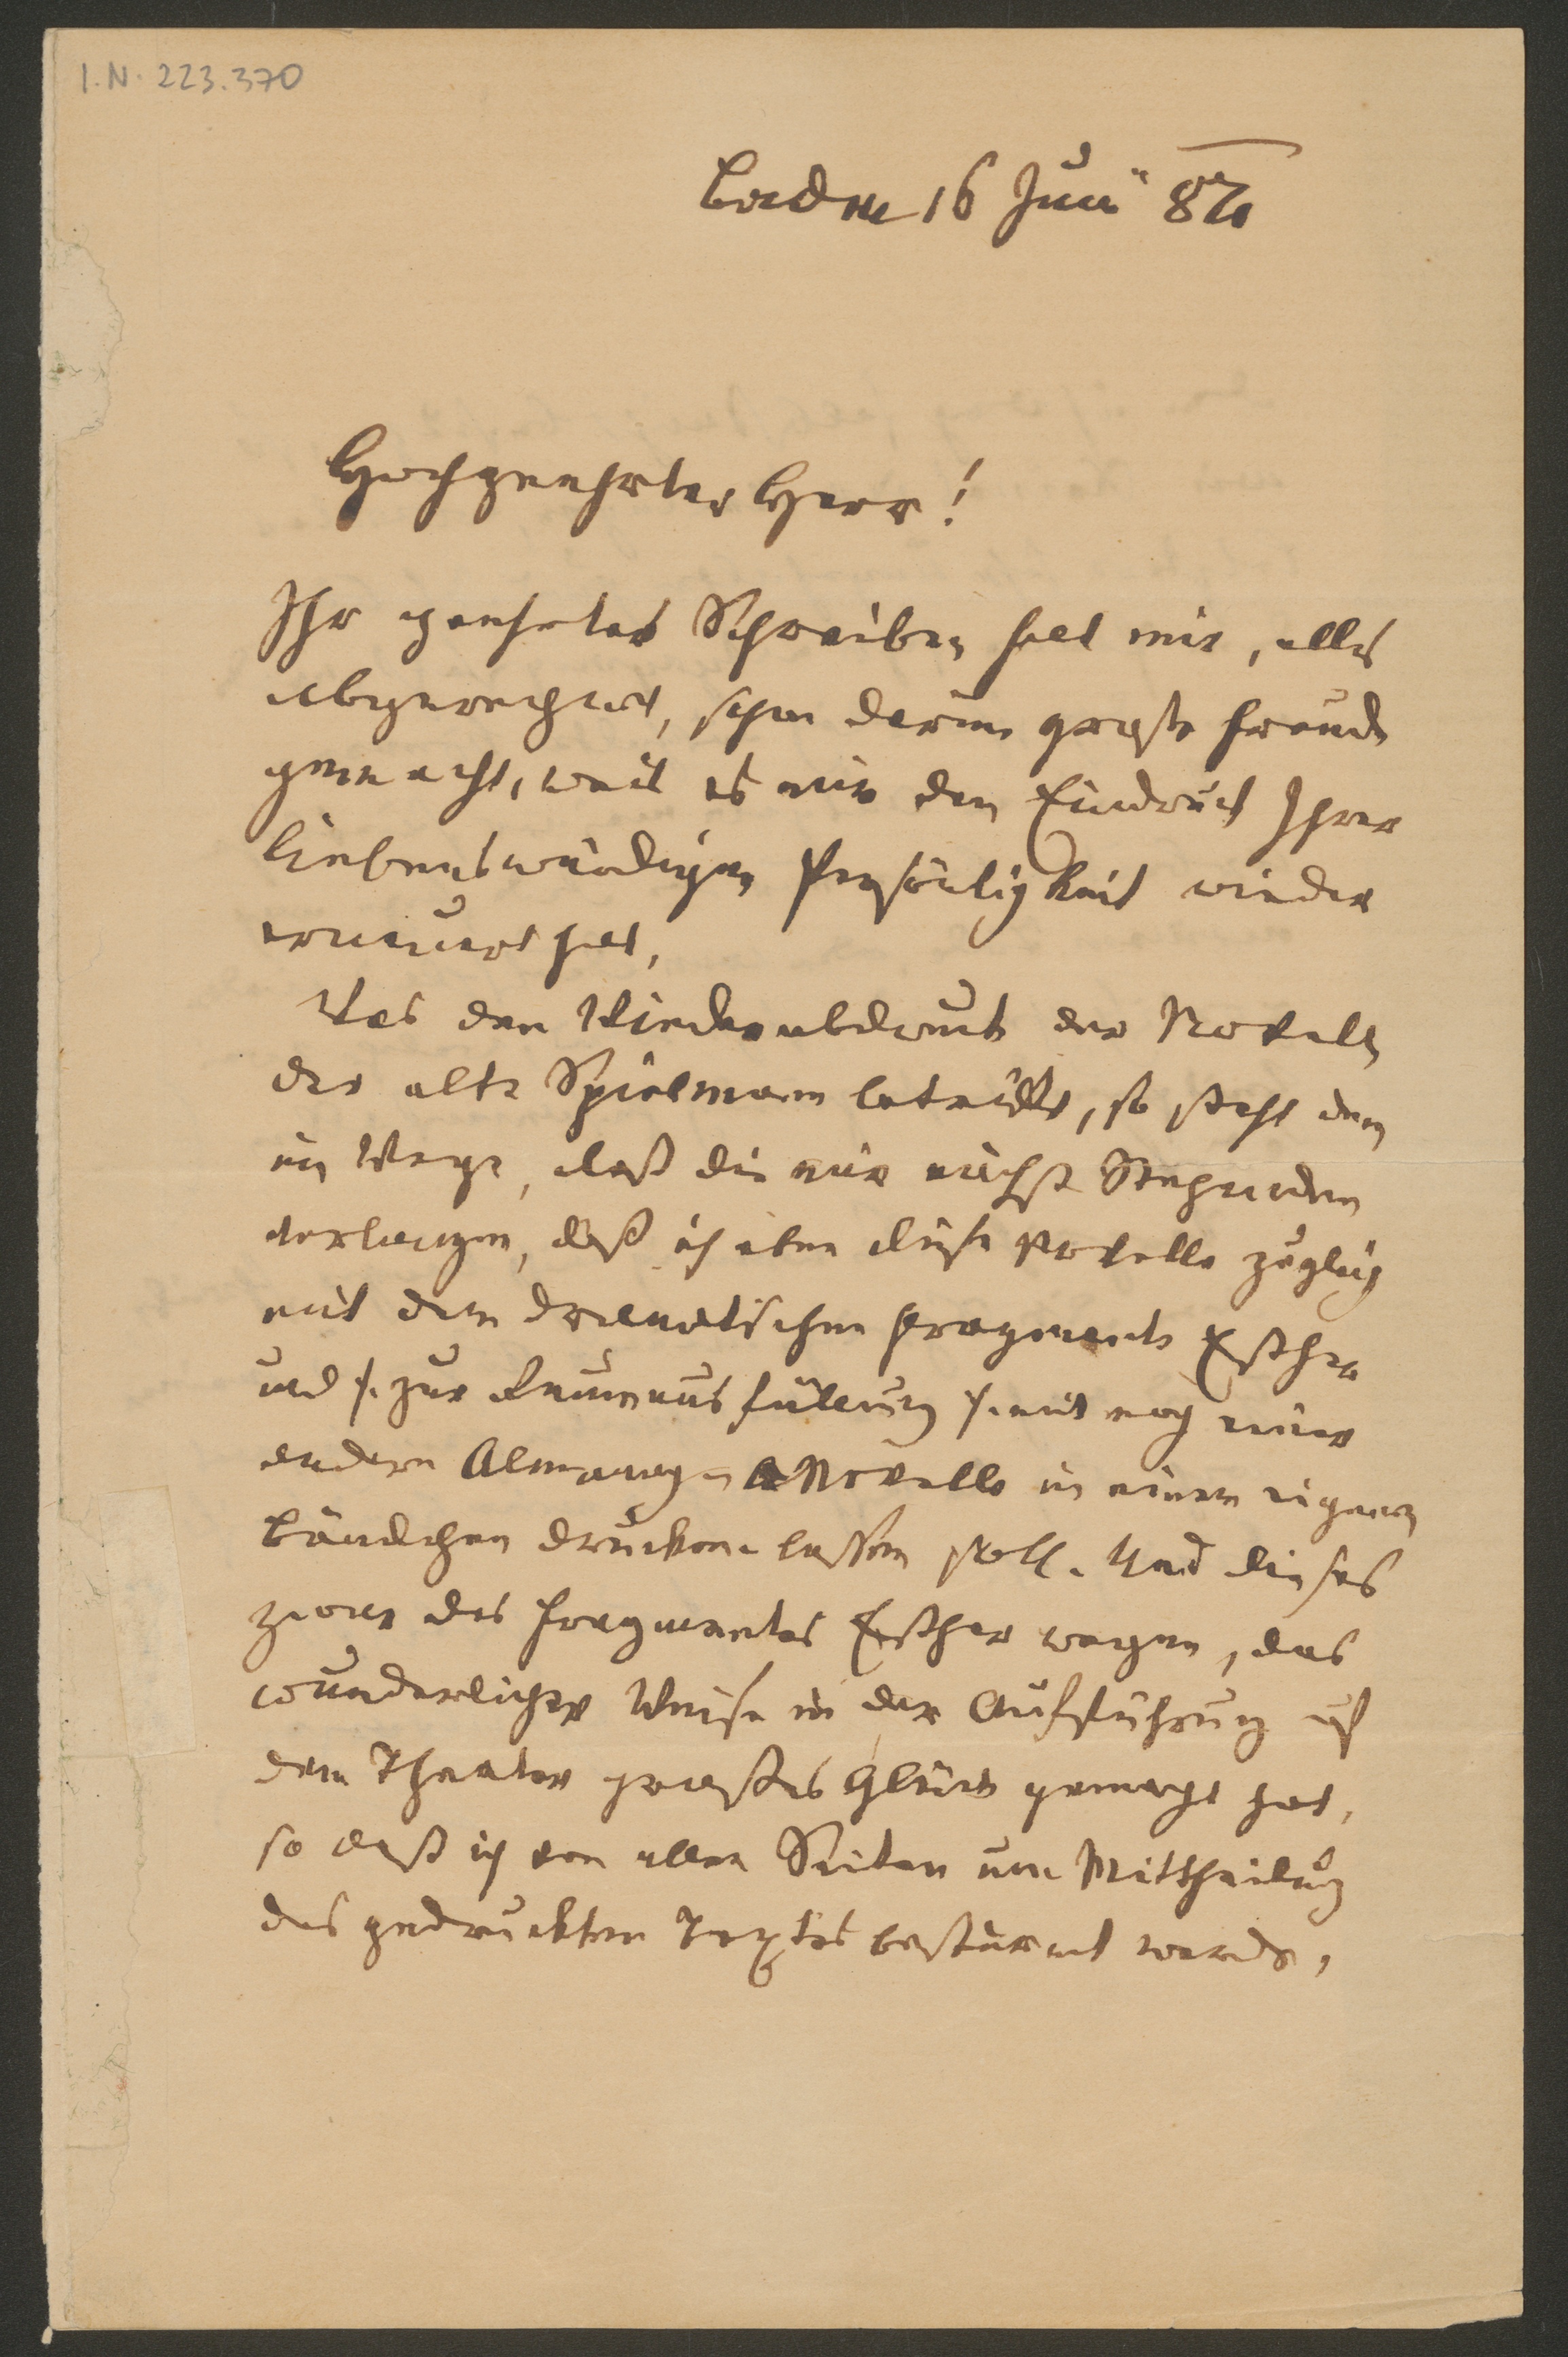 I.N. 223.370
Baden 16 Juni 870
Hochgeehrter Herr!
Ihr geehrtes Schreiben hat mir, alles
abgerechnet, schon darum große Freude
gemacht, weil es mir den Eindruck Ihrer
liebenswürdigen Persönlichkeit wieder
erneuert hat,
Was den Wiederabdruck der Novelle
der alte Spielmann betrifft, so steht dem
im Wege, daß die mir nächst Stehenden
verlangen, daß ich eben diese Novelle zugleich
mit dem dramatischen Fragmente Esther
und /: zur Raumausfüllung :/ mit noch einer
andern Almanach-Novelle in einem eigenen
Bändchen drucken lassen soll. Und dieses
zwar des Fragmentes Esther wegen, das
wunderlicher Weise in der Aufführung auf
dem Theater großes Glück gemacht hat,
so daß ich von allen Seiten um Mittheilung
des gedruckten Textes bestürmt werde,